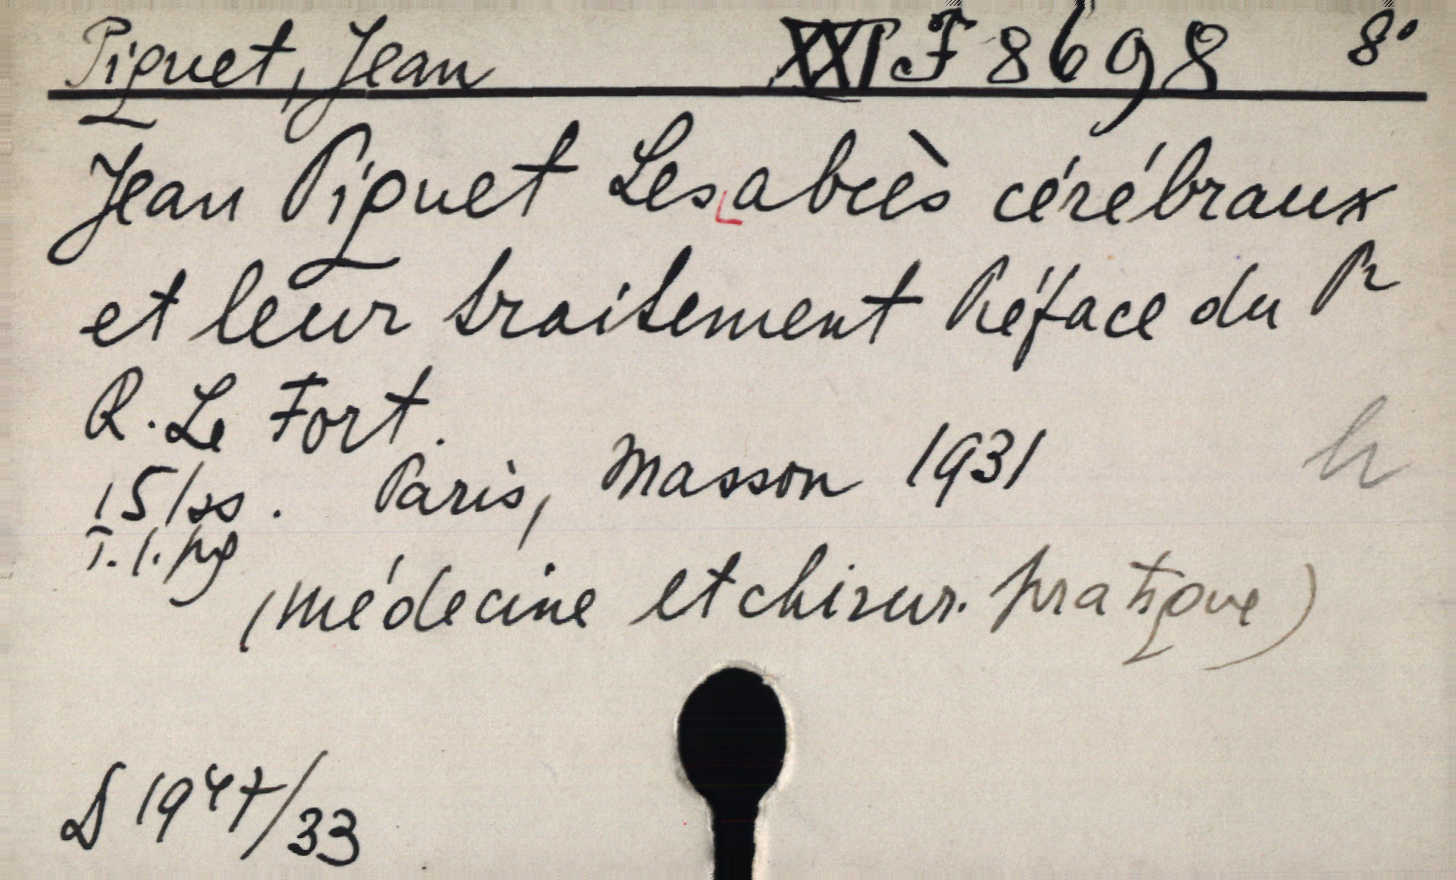 Piquet, Jean XXI F 8698 8°
Jean Piquet Les abcès cérébraux
et leur traitement Préface du Pr
R. Le Fort.
151 ss. Paris, Masson 1931 h
T. l. pg
(médecine et chirur. pratique)
D 1947/33